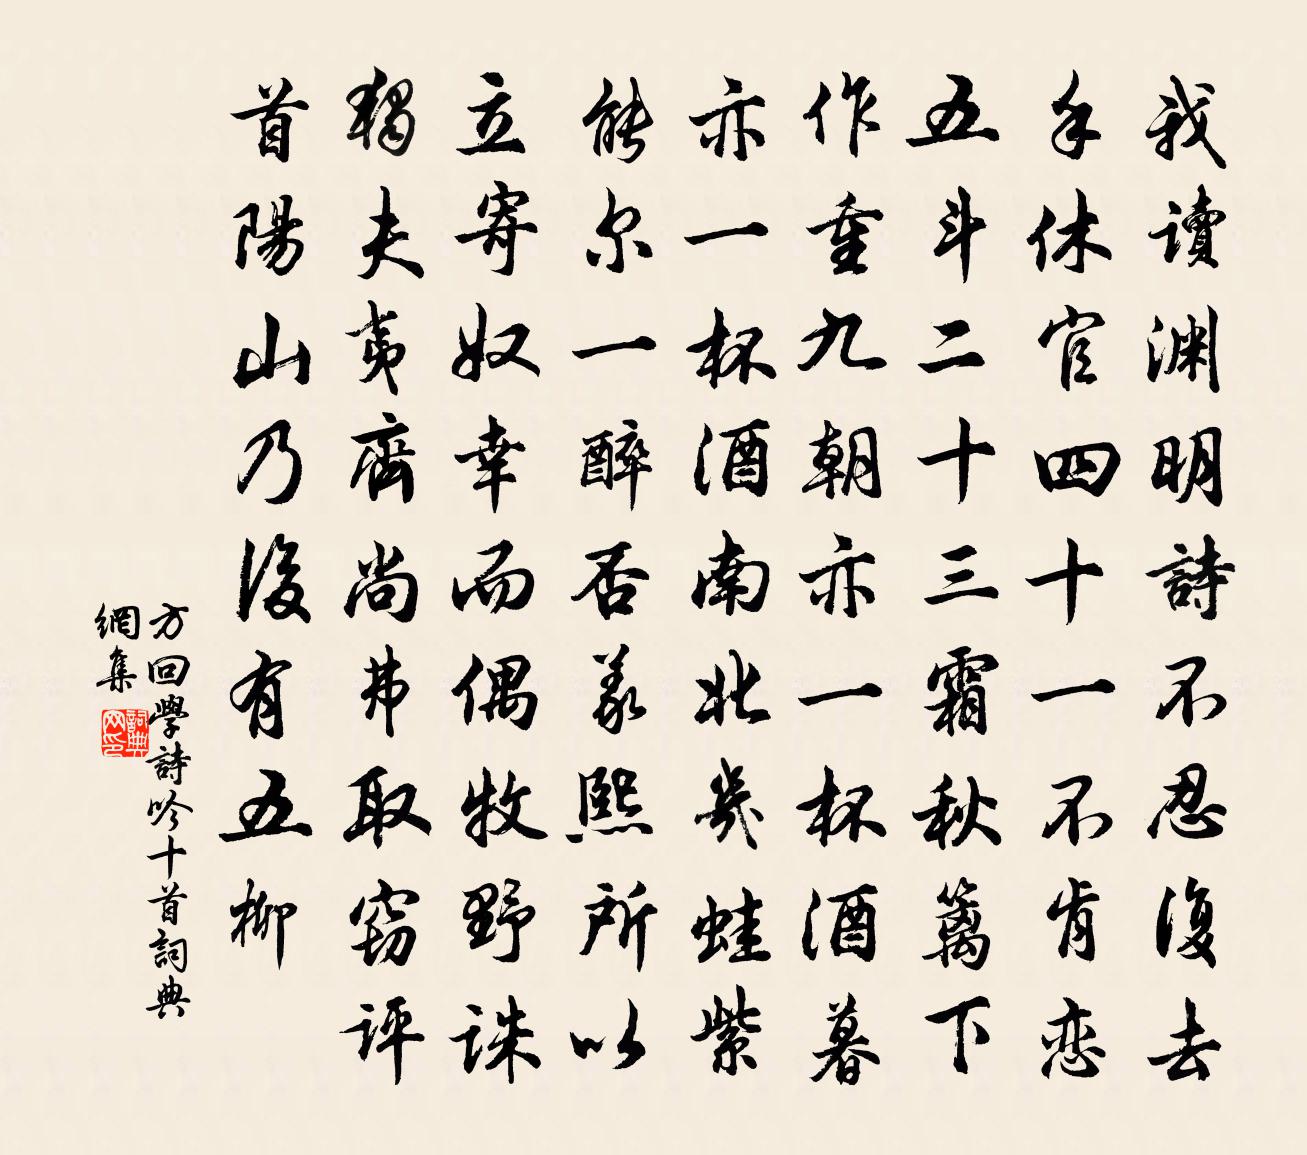 我讀渊明詩不忍復去
手休官四十一不肯恋
五斗二十三霜秋籬下
作重九朝亦一杯酒暮
亦一杯酒南北幾蛙紫
能尔一醉否羲熙所以
立寄奴幸而偶牧野誅
獨夫夷齊尚弗取窃评
首陽山乃後有五柳
方回學詩吟十首詞典
網集
詞典
网印